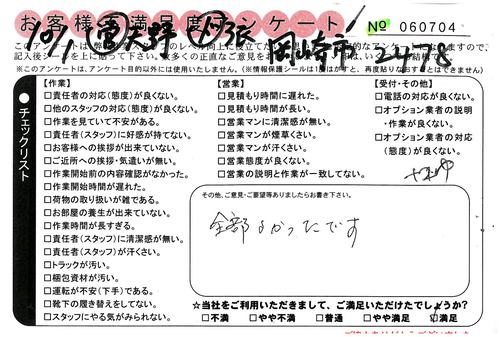 お客様満足度アンケート
№ 060704
10/1
岡崎市
2478
※このアンケートは、アンケート目的以外には使用いたしません。
チェックリスト
【作業】
□責任者の対応(態度)が良くない。
□他のスタッフの対応(態度)が良くない。
□作業を見ていて不安がある。
□責任者(スタッフ)に好感が持てない。
□お客様への挨拶が出来ていない。
□ご近所への挨拶・気遣いが無い。
□作業開始前の内容確認がなかった。
□作業開始時間が遅れた。
□荷物の取り扱いが雑である。
□お部屋の養生が出来ていない。
□作業時間が長すぎる。
□責任者(スタッフ)に清潔感が無い。
□責任者(スタッフ)が汗くさい。
□トラックが汚い。
□梱包資材が汚い。
□運転が不安(下手)である。
□靴下の履き替えをしてない。
□スタッフにやる気がみられない。
【営業】
□見積もり時間に遅れた。
□見積もり時間が長い。
□営業マンに清潔感が無い。
□営業マンが煙草くさい。
□営業マンが汗くさい。
□営業態度が良くない。
□営業の説明と作業が一致してない。
【受付・その他】
□電話の対応が良くない。
□オプション業者の説明
・作業が良くない。
□オプション業者の対応
(態度)が良くない。
その他、ご意見・ご要望等ありましたらお書き下さい。
全部よかったです
☆当社をご利用いただきまして、ご満足いただけたでしょうか?
□不満 □やや不満 □普通 □やや満足 ☑満足